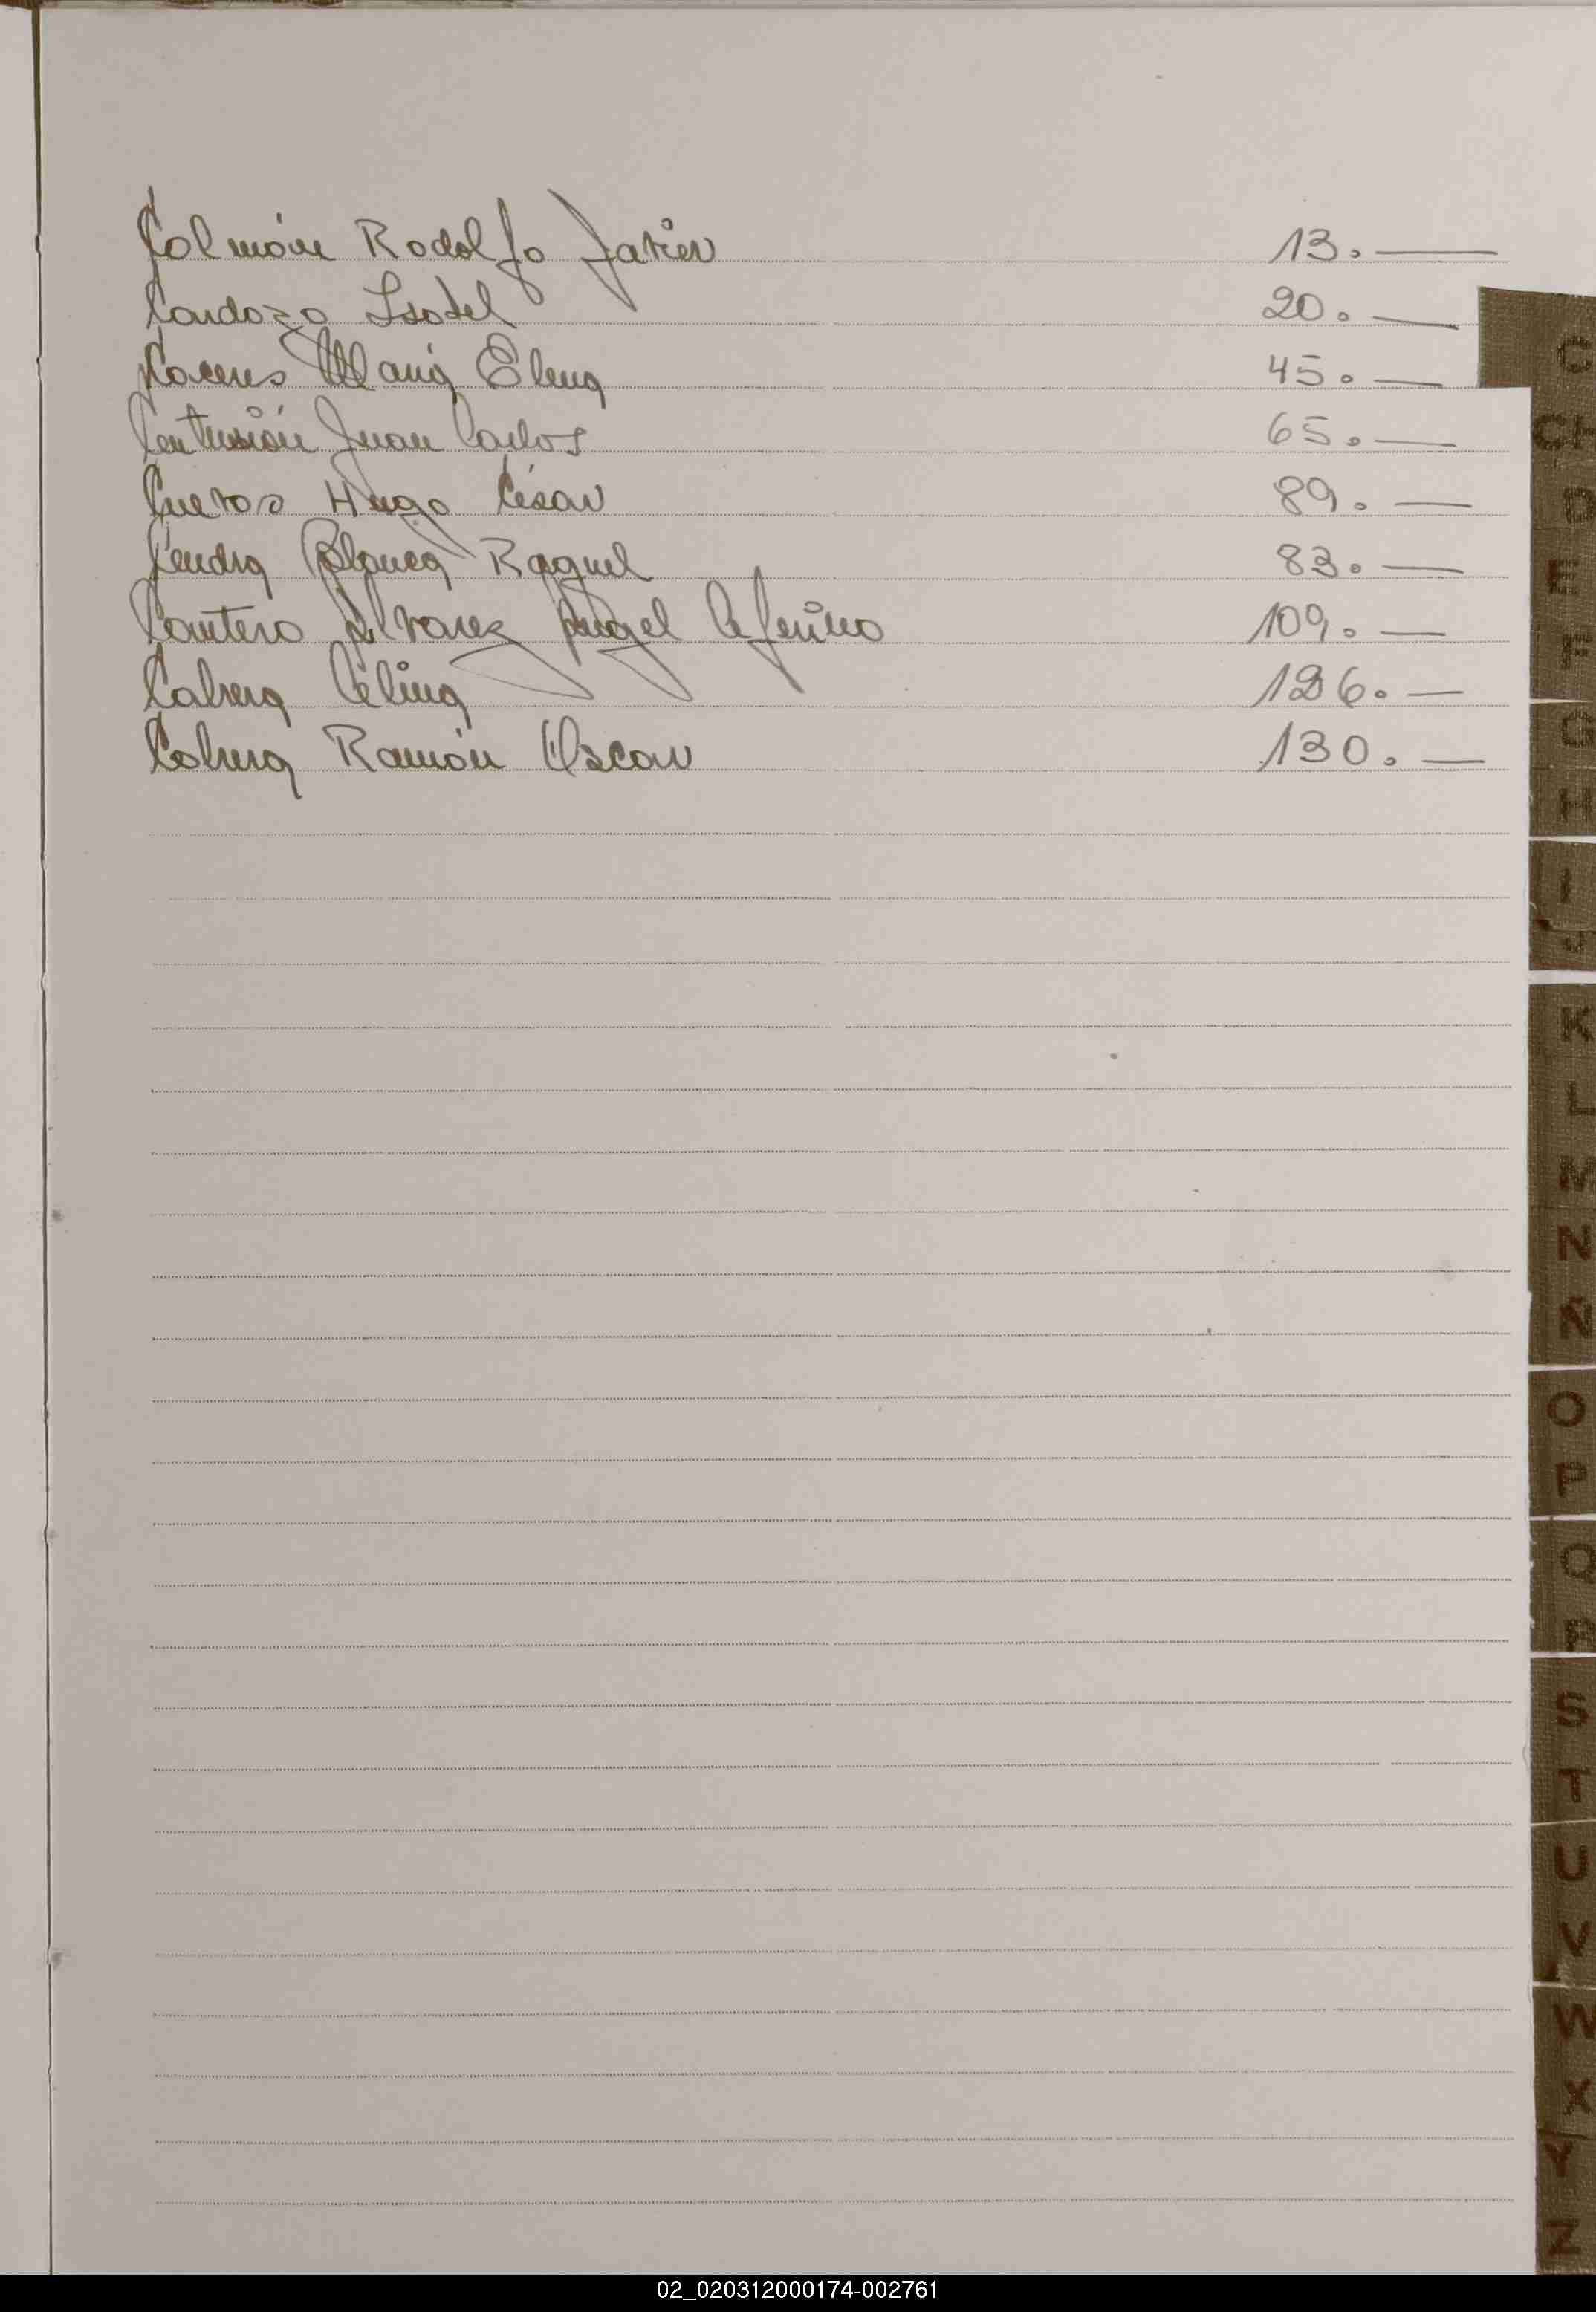 Colmán Rodolfo Javier 13.—
Cardozo Isabel 20.—
Caceres María Elena 45.—
Centurión Juan Carlos 65.—
Cuevas Hugo César 89.—
Cendra Blanca Raquel 83.—
Cantero Alvarez Angel Ceferino 109.—
Cabrera Celina 126.—
Cabrera Ramón Oscar 130.—
C
CH
D
E
F
G
H
I
J
K
L
M
N
Ñ
O
P
Q
R
S
T
U
V
W
X
Y
Z
02_020312000174-002761